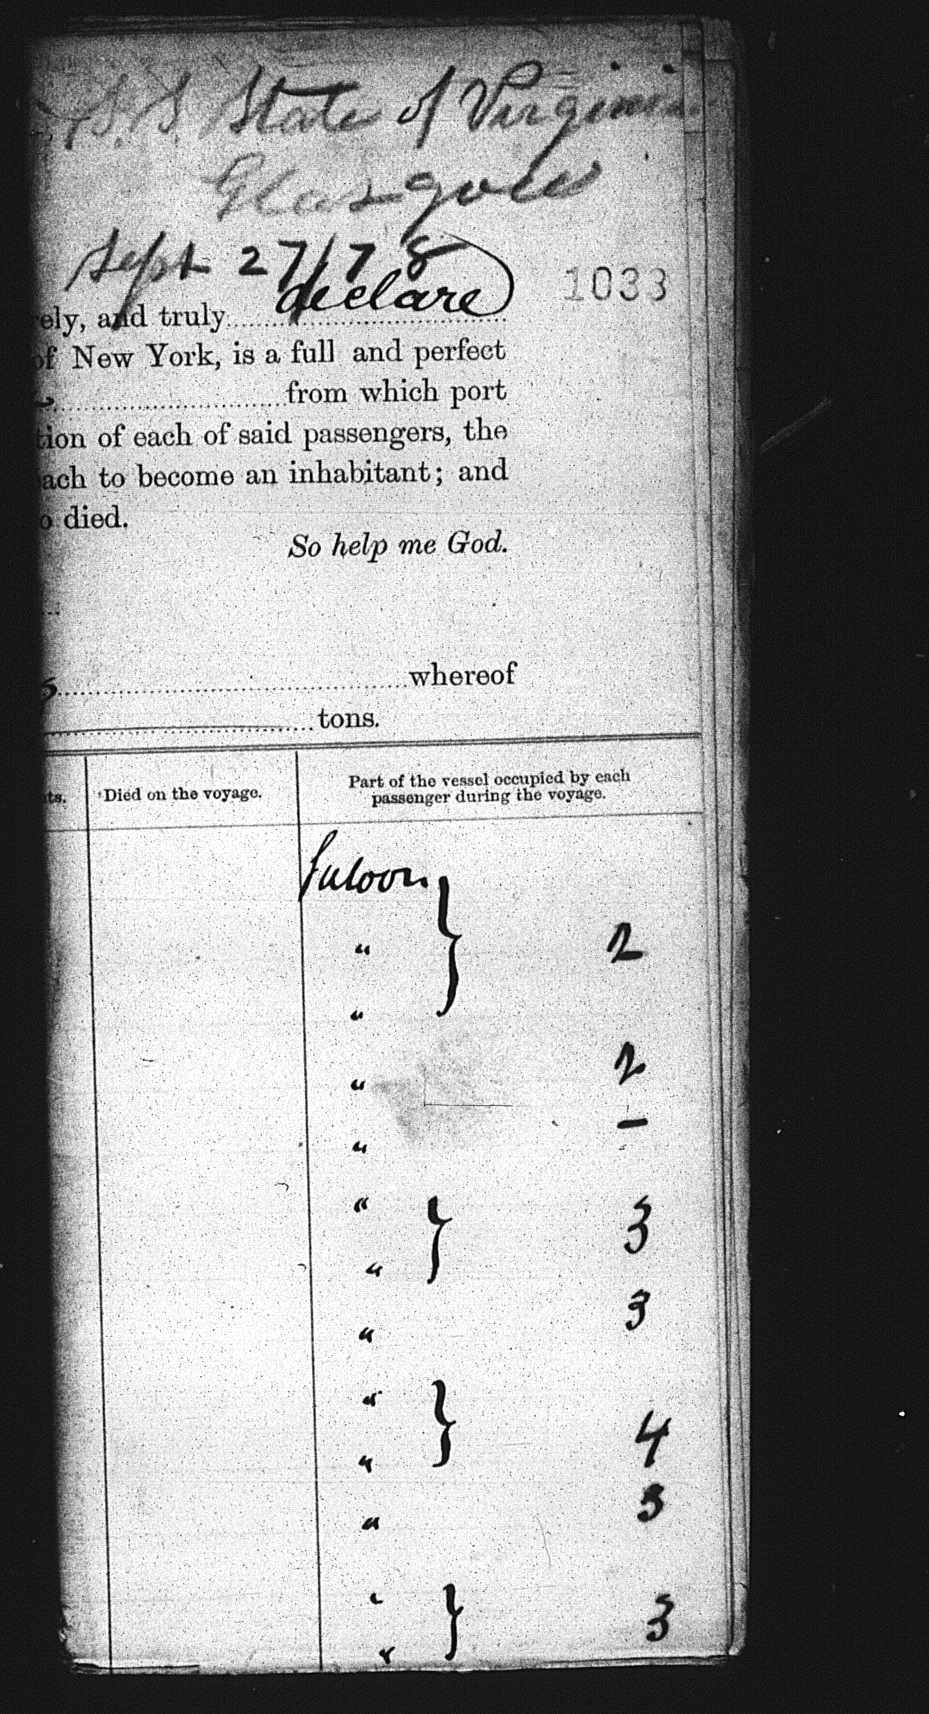 S.S. State of Virginia
Glasgow
Sept 27/78
1033
ely, and truly declare
of New York, is a full and perfect
from which port
tion of each of said passengers, the
ach to become an inhabitant; and
o died.
So help me God.
whereof
tons.
ts. Died on the voyage. Part of the vessel occupied by each
passenger during the voyage.
Saloon
" } 2
"
" 2
" –
" } 3
"
" 3
" } 4
"
" 3
" } 3
"